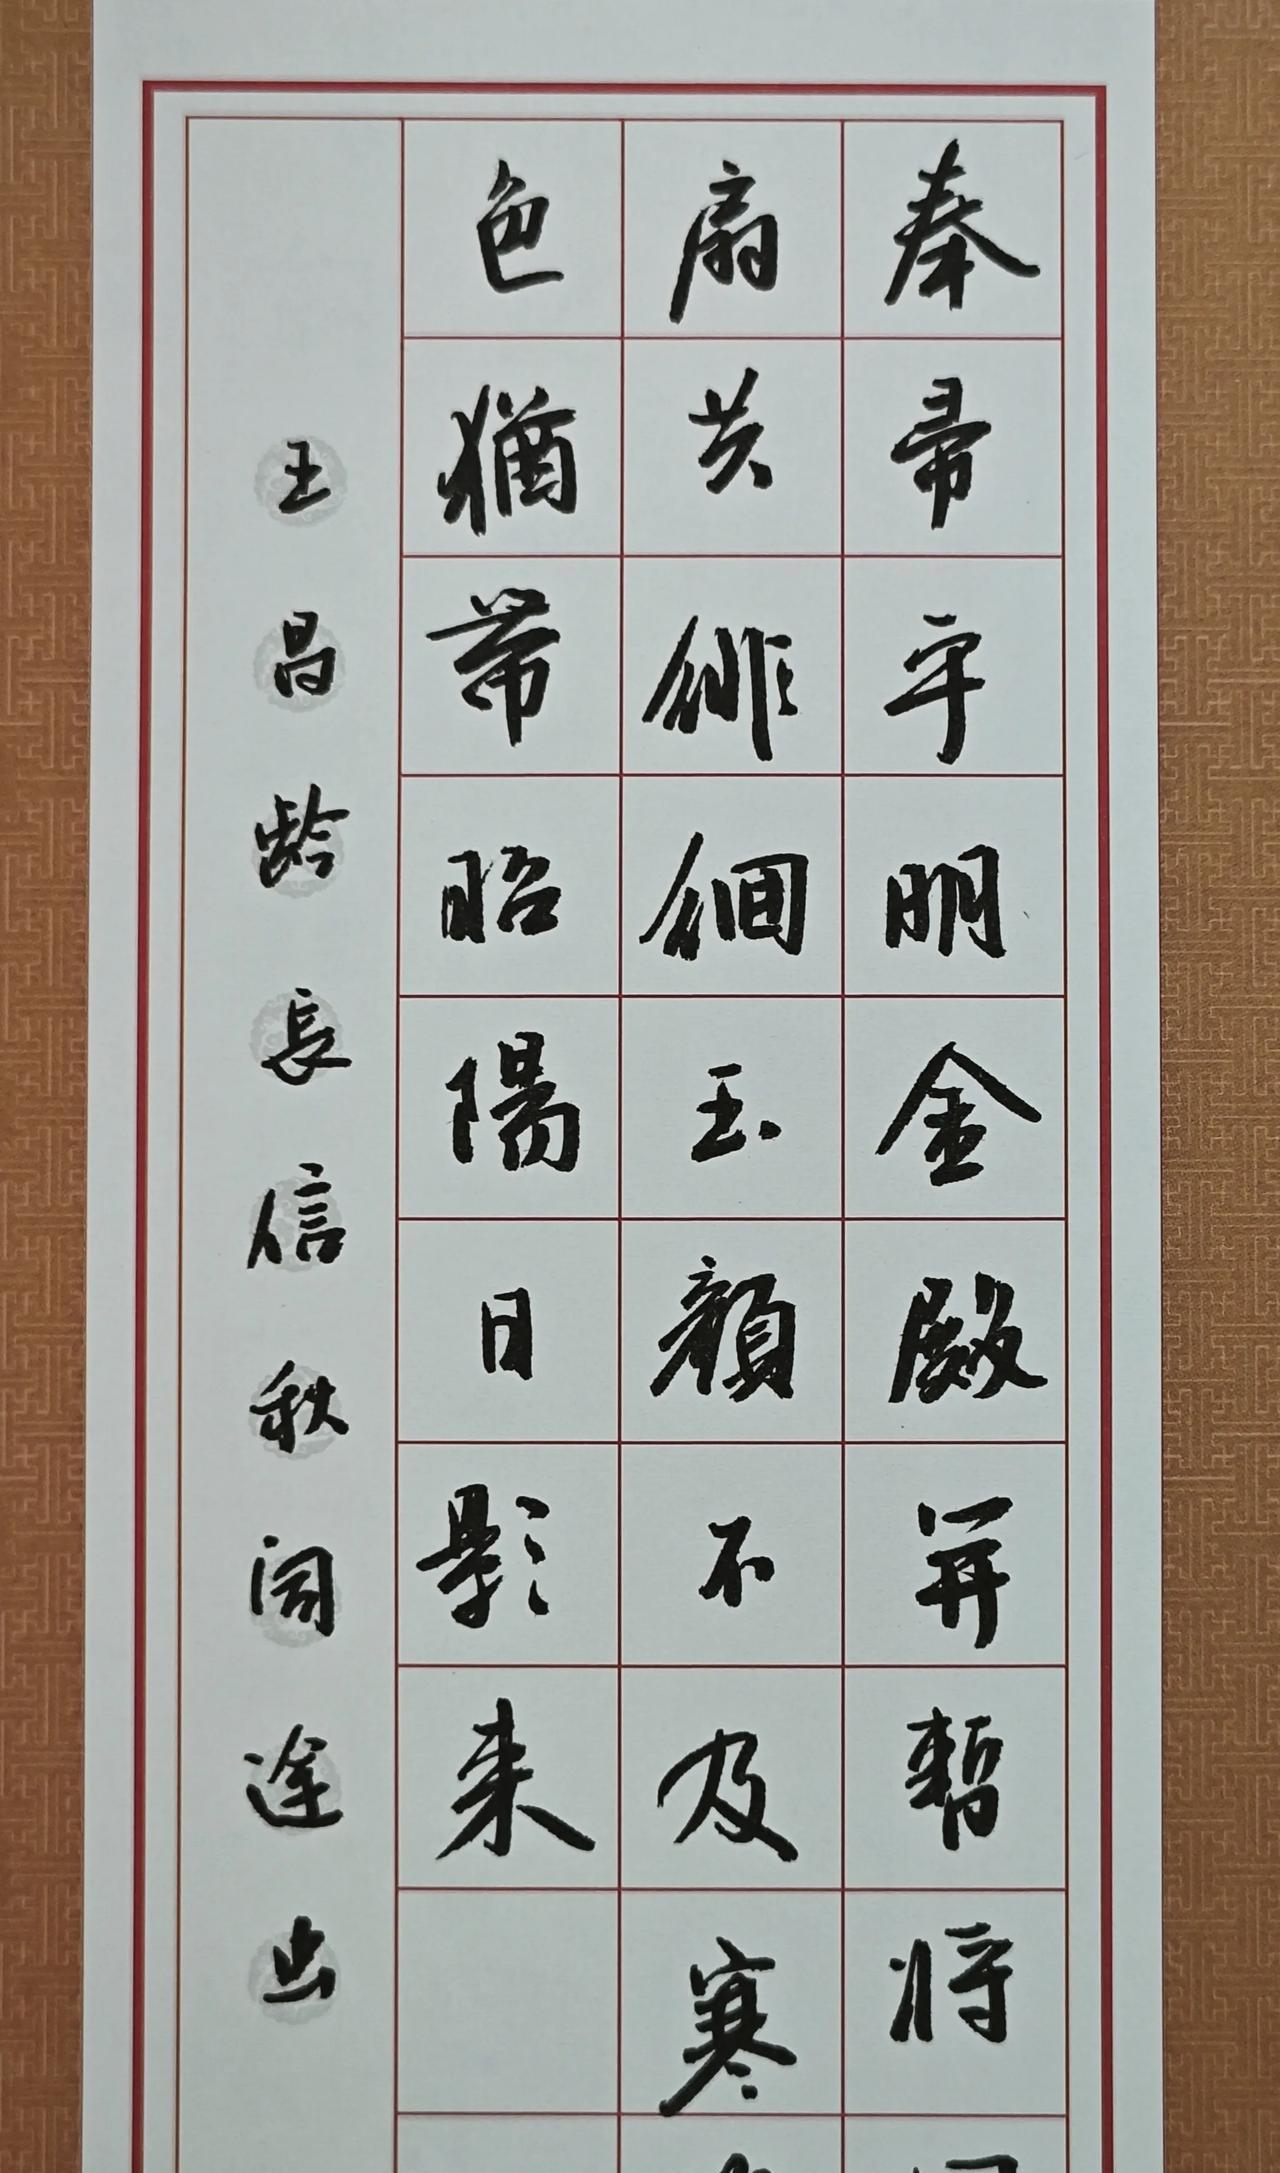 奉帚平明金殿開暫将
扇共徘徊玉顔不及寒
色猶帶昭陽日影来
王昌龄長信秋词途出